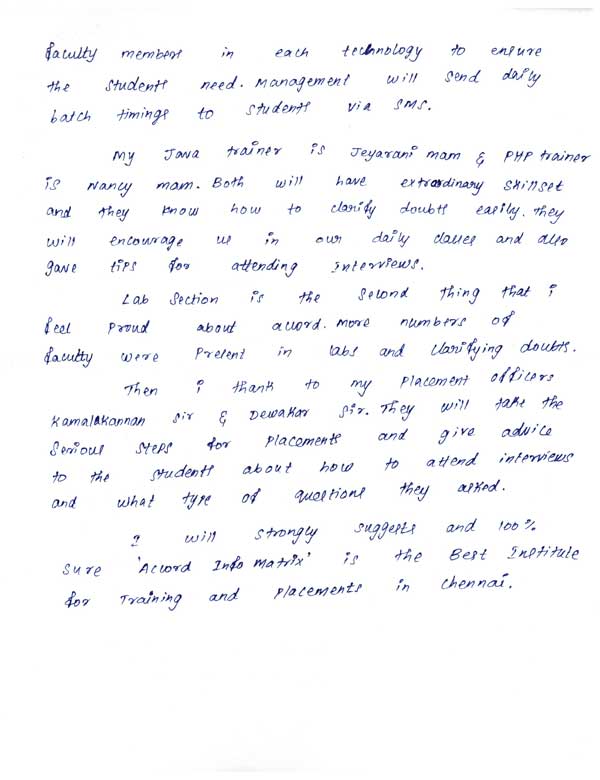 faculty members in each technology to ensure
the students need. Management will send daily
batch timings to students via SMS.
My Java trainer is Jeyarani mam & PHP trainer
is Nancy mam. Both will have extraordinary skillset
and they know how to clarify doubts easily. They
will encourage us in our daily classes and also
gave tips for attending Interviews.
Lab Section is the Second thing that i
feel Proud about accord. More numbers of
faculty were Present in labs and clarifying doubts.
Then i thank to my Placement officers
Kamalakannan Sir & Dewakar Sir. They will take the
Serious Steps for Placements and give advice
to the students about how to attend interviews
and what type of questions they asked.
I will strongly suggests and 100%
Sure 'Accord Info Matrix' is the Best Institute
for Training and Placements in Chennai.